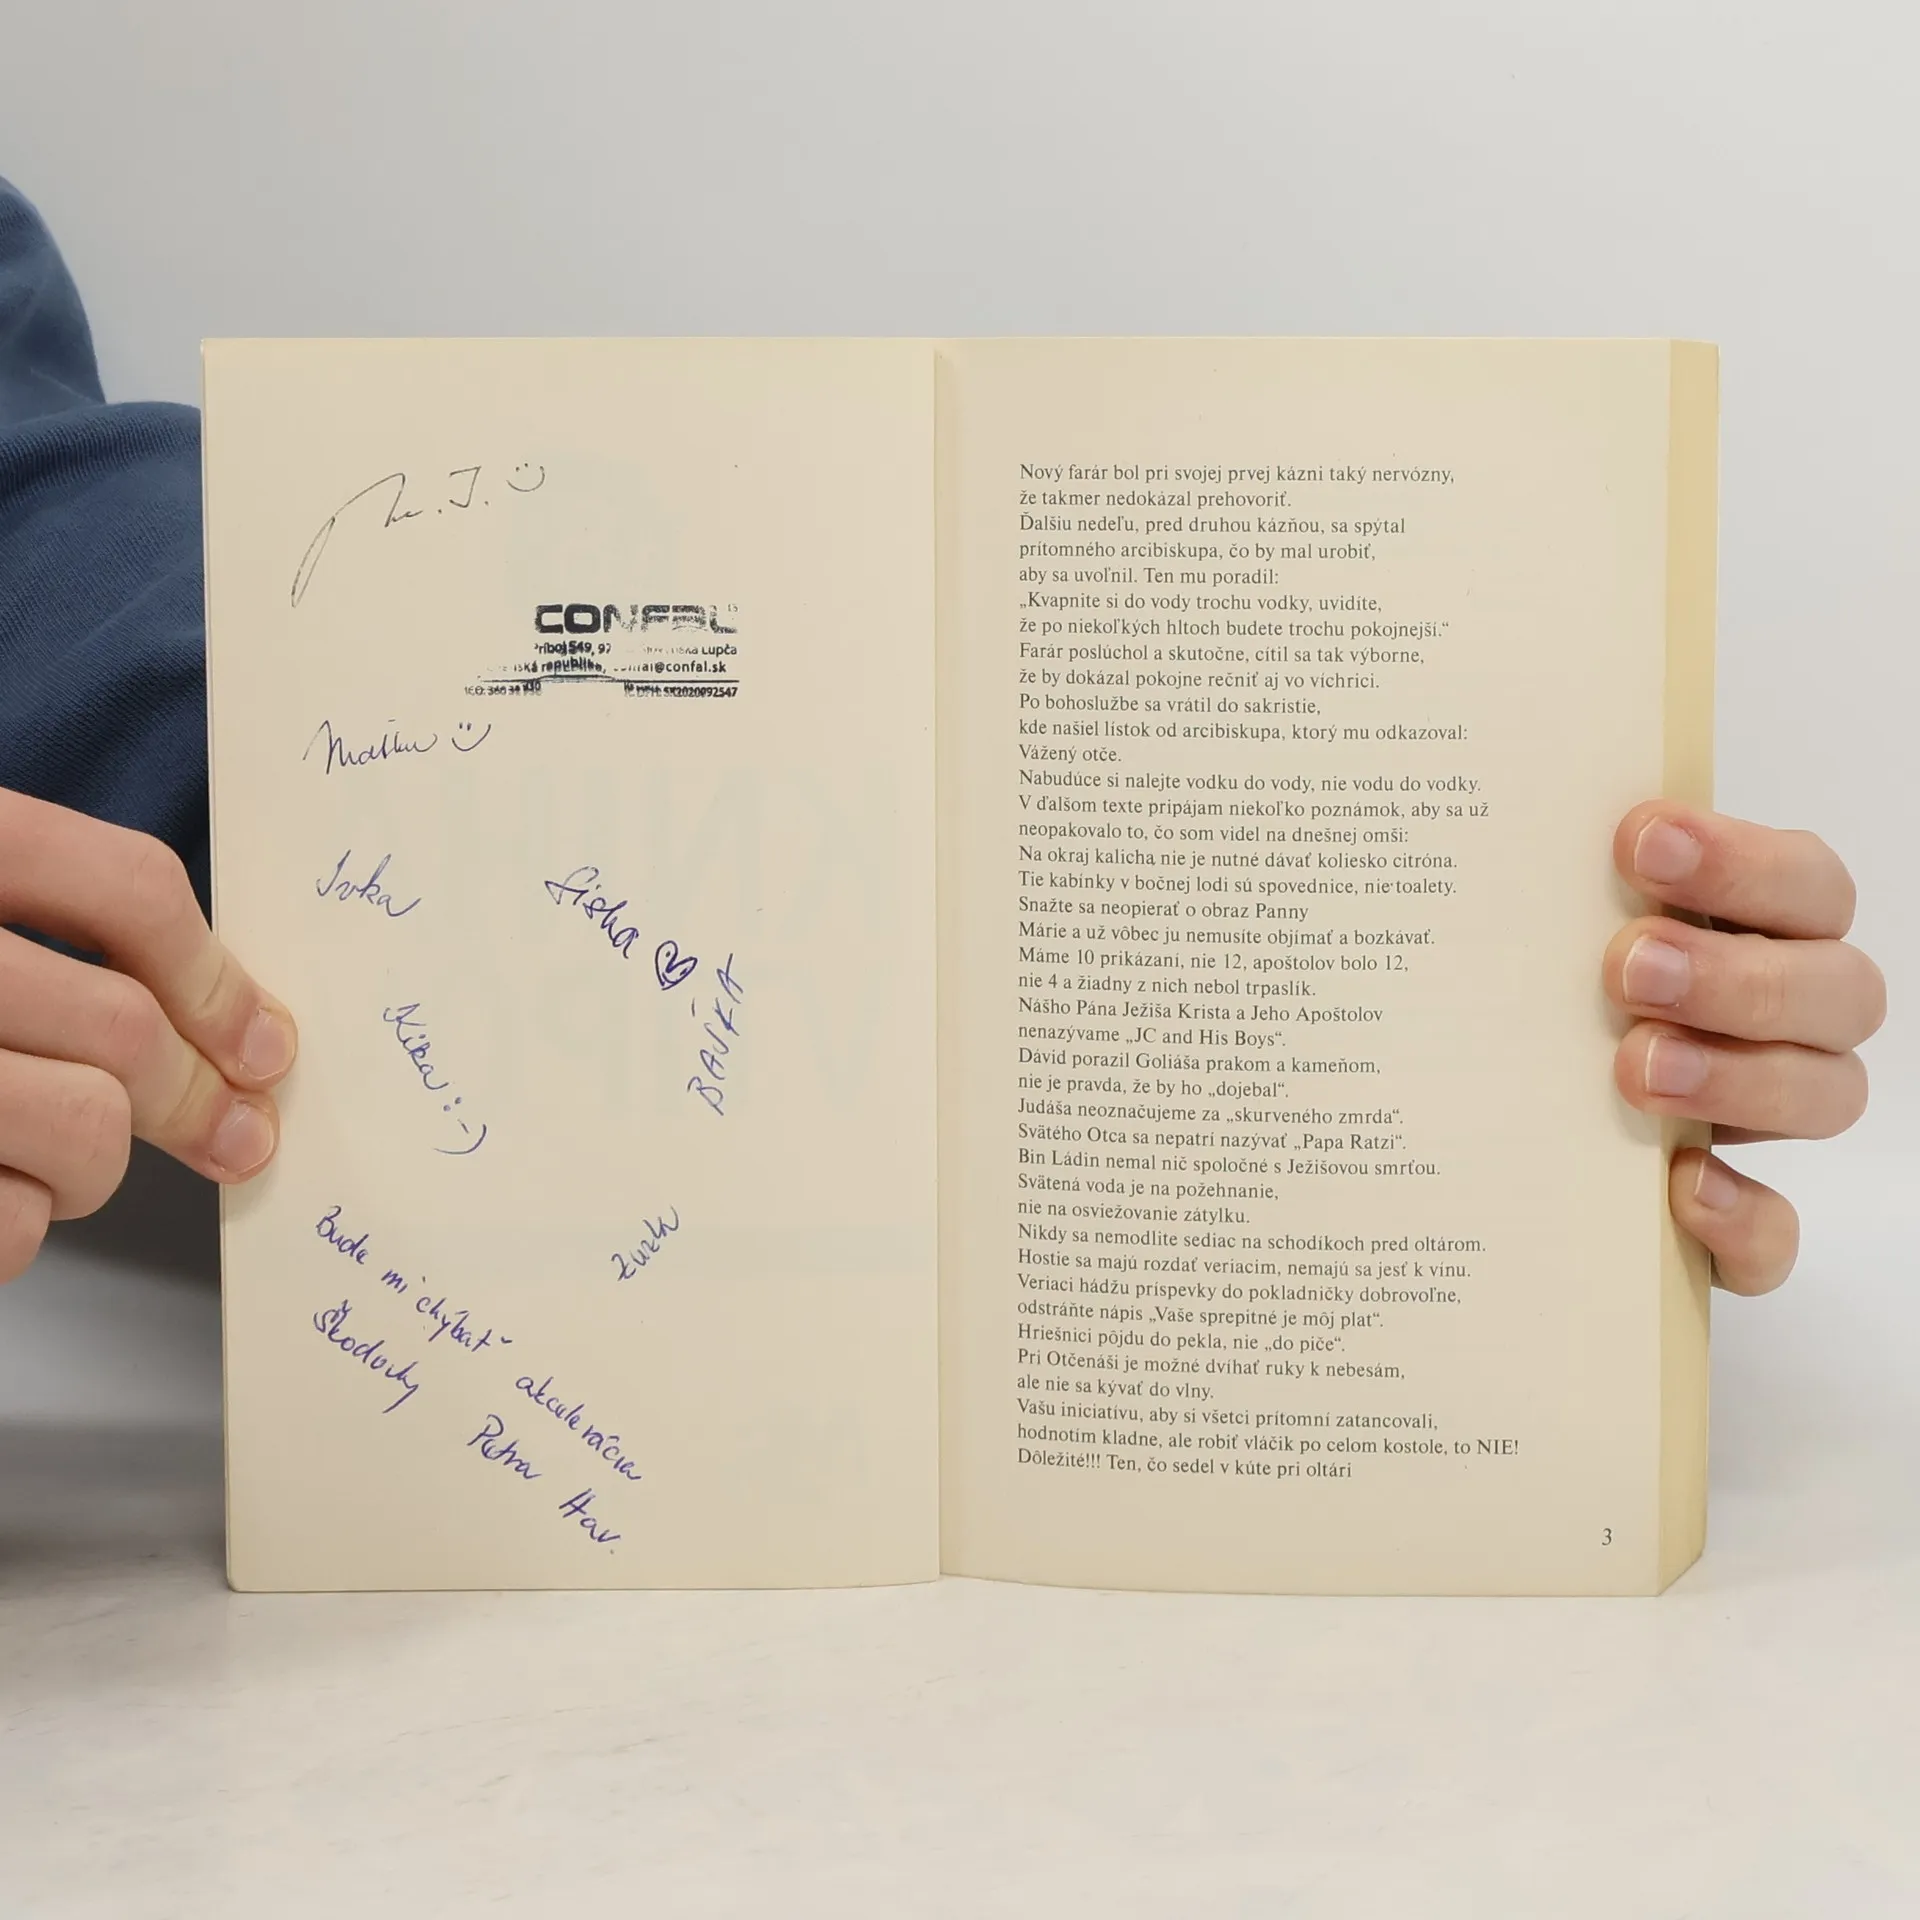 J. :)
CONFAL
549, 97 Lupča
confal@confal.sk
Ivka
Siska
BAŠKA
Kika :-)
Zuzk
Bude mi chýbať akcelerácia
Škodovky
Petra Hav.
Nový farár bol pri svojej prvej kázni taký nervózny,
že takmer nedokázal prehovoriť.
Ďalšiu nedeľu, pred druhou kázňou, sa spýtal
prítomného arcibiskupa, čo by mal urobiť,
aby sa uvoľnil. Ten mu poradil:
„Kvapnite si do vody trochu vodky, uvidíte,
že po niekoľkých hltoch budete trochu pokojnejší.“
Farár poslúchol a skutočne, cítil sa tak výborne,
že by dokázal pokojne rečniť aj vo víchrici.
Po bohoslužbe sa vrátil do sakristie,
kde našiel lístok od arcibiskupa, ktorý mu odkazoval:
Vážený otče.
Nabudúce si nalejte vodku do vody, nie vodu do vodky.
V ďalšom texte pripájam niekoľko poznámok, aby sa už
neopakovalo to, čo som videl na dnešnej omši:
Na okraj kalicha nie je nutné dávať koliesko citróna.
Tie kabínky v bočnej lodi sú spovednice, nie toalety.
Snažte sa neopierať o obraz Panny
Márie a už vôbec ju nemusíte objímať a bozkávať.
Máme 10 prikázaní, nie 12, apoštolov bolo 12,
nie 4 a žiadny z nich nebol trpaslík.
Nášho Pána Ježiša Krista a Jeho Apoštolov
nenazývame „JC and His Boys“.
Dávid porazil Goliáša prakom a kameňom,
nie je pravda, že by ho „dojebal“.
Judáša neoznačujeme za „skurveného zmrda“.
Svätého Otca sa nepatrí nazývať „Papa Ratzi“.
Bin Ládin nemal nič spoločné s Ježišovou smrťou.
Svätená voda je na požehnanie,
nie na osviežovanie zátylku.
Nikdy sa nemodlite sediac na schodíkoch pred oltárom.
Hostie sa majú rozdať veriacim, nemajú sa jesť k vínu.
Veriaci hádžu príspevky do pokladničky dobrovoľne,
odstráňte nápis „Vaše sprepitné je môj plat“.
Hriešnici pôjdu do pekla, nie „do piče“.
Pri Otčenáši je možné dvíhať ruky k nebesám,
ale nie sa kývať do vlny.
Vašu iniciatívu, aby si všetci prítomní zatancovali,
hodnotím kladne, ale robiť vláčik po celom kostole, to NIE!
Dôležité!!! Ten, čo sedel v kúte pri oltári
3